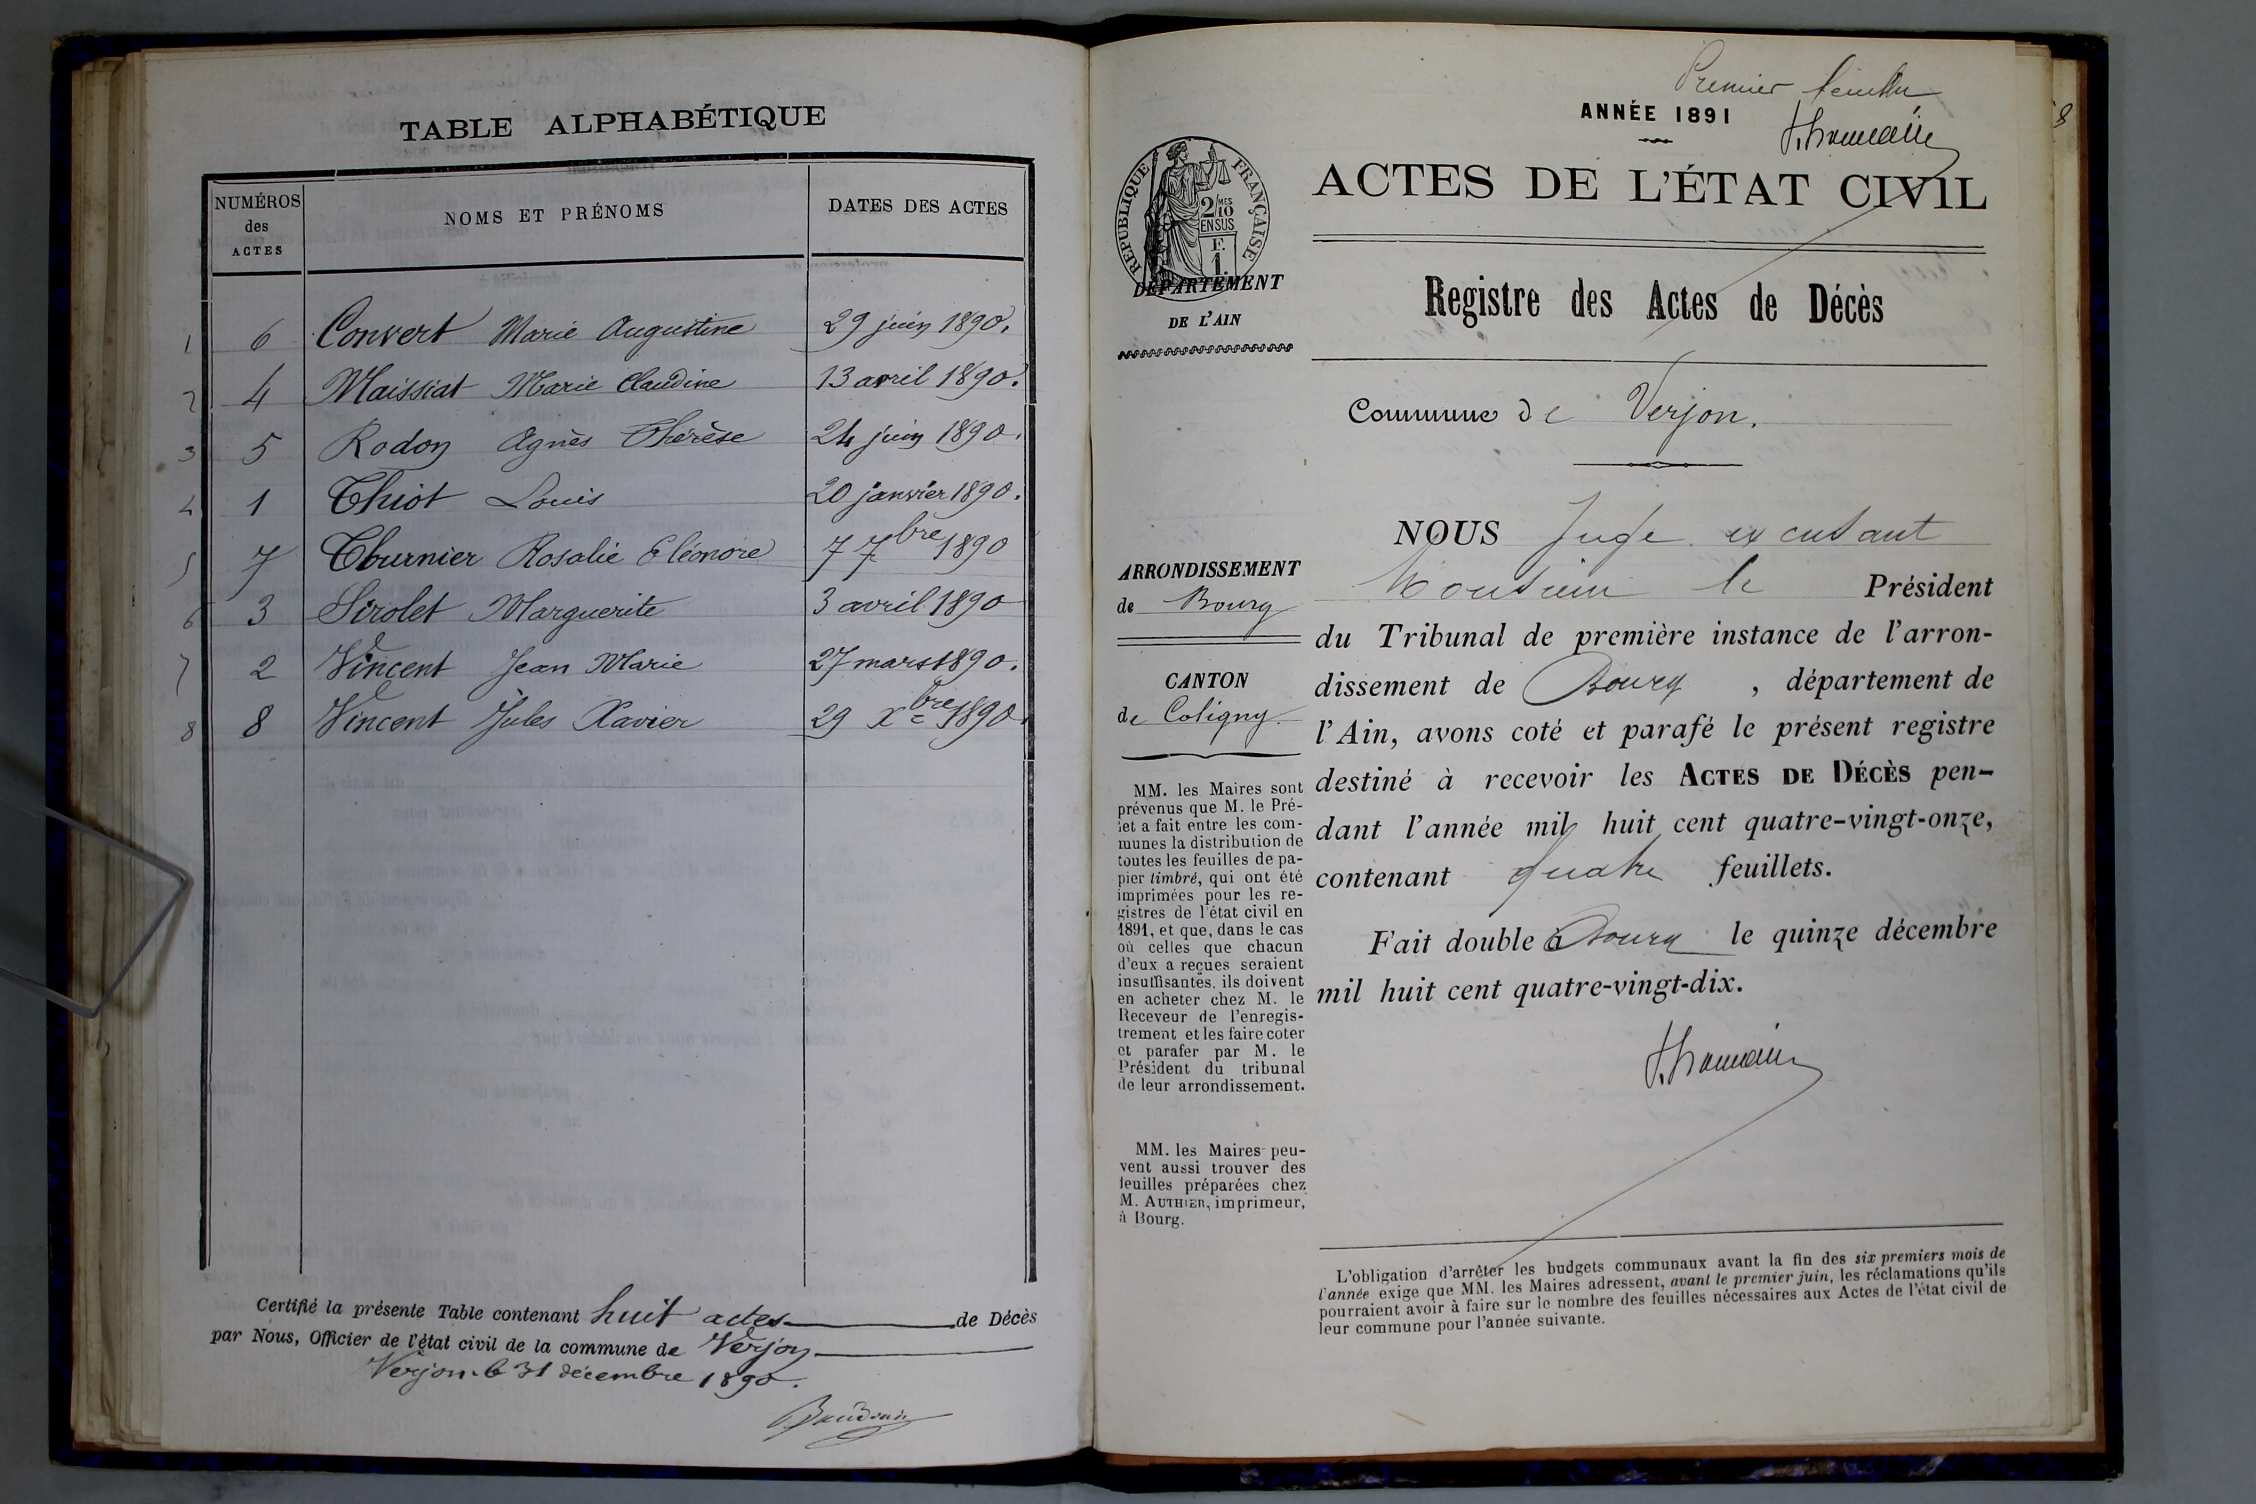 TABLE ALPHABÉTIQUE
NUMÉROS des ACTES NOMS ET PRÉNOMS DATES DES ACTES
1 6 Convert Marie Augustine 29 juin 1890.
2 4 Maissiat Marie Claudine 13 avril 1890.
3 5 Rodon Agnès Thérèse 24 juin 1890.
4 1 Thiot Louis 20 janvier 1890.
5 7 Tournier Rosalie Eléonore 7 7bre 1890
6 3 Sirolet Marguerite 3 avril 1890
7 2 Vincent Jean Marie 27 mars 1890.
8 8 Vincent Jules Xavier 29 Xbre 1890.
Certifié la présente Table contenant huit actes de Décès
par Nous, Officier de l'état civil de la commune de Verjon
Verjon le 31 décembre 1890.
Premier
8
ANNÉE 1891
RÉPUBLIQUE FRANÇAISE
2 MES 10
EN SUS
F.
1.
DÉPARTEMENT
DE L'AIN
ACTES DE L'ÉTAT CIVIL
Registre des Actes de Décès
Commune de Verjon.
ARRONDISSEMENT
de Bourg
CANTON
de Coligny
MM. les Maires sont
prévenus que M. le Pré-
fet a fait entre les com-
munes la distribution de
toutes les feuilles de pa-
pier timbré, qui ont été
imprimées pour les re-
gistres de l'état civil en
1891, et que, dans le cas
où celles que chacun
d'eux a reçues seraient
insuffisantes, ils doivent
en acheter chez M. le
Receveur de l'enregis-
trement et les faire coter
et parafer par M. le
Président du tribunal
de leur arrondissement.
MM. les Maires peu-
vent aussi trouver des
feuilles préparées chez
M. AUTHIER, imprimeur,
à Bourg.
NOUS Juge excusant
Monsieur le Président
du Tribunal de première instance de l'arron-
dissement de Bourg , département de
l'Ain, avons coté et parafé le présent registre
destiné à recevoir les ACTES DE DÉCÈS pen-
dant l'année mil huit cent quatre-vingt-onze,
contenant quatre feuillets.
Fait double à Bourg le quinze décembre
mil huit cent quatre-vingt-dix.
L'obligation d'arrêter les budgets communaux avant la fin des six premiers mois de
l'année exige que MM. les Maires adressent, avant le premier juin, les réclamations qu'ils
pourraient avoir à faire sur le nombre des feuilles nécessaires aux Actes de l'état civil de
leur commune pour l'année suivante.